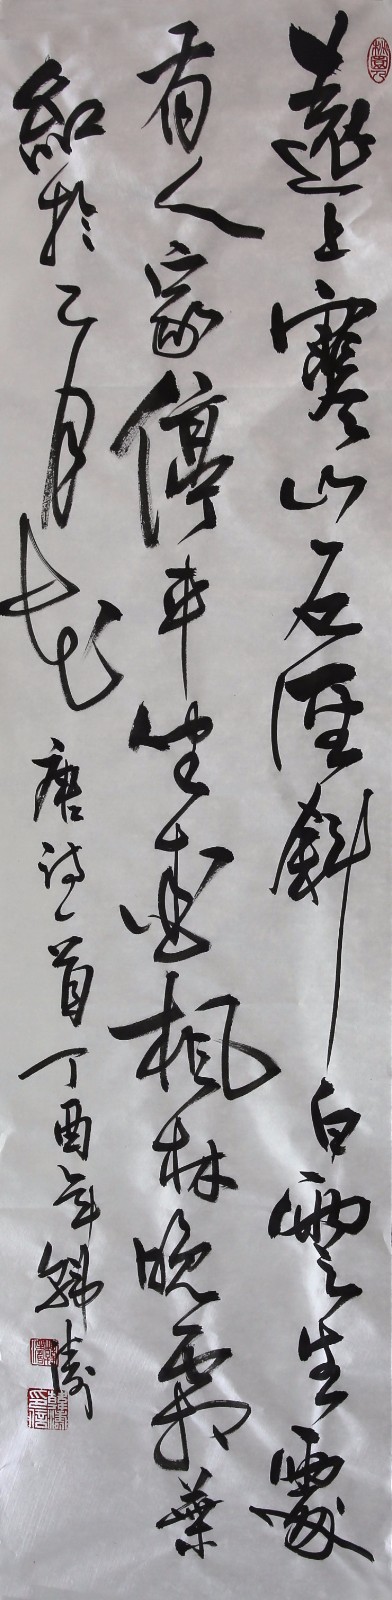 遠上寒山石径斜白雲生處
有人家停车坐爱楓林晚霜葉
紅於二月花 唐诗一首丁酉年